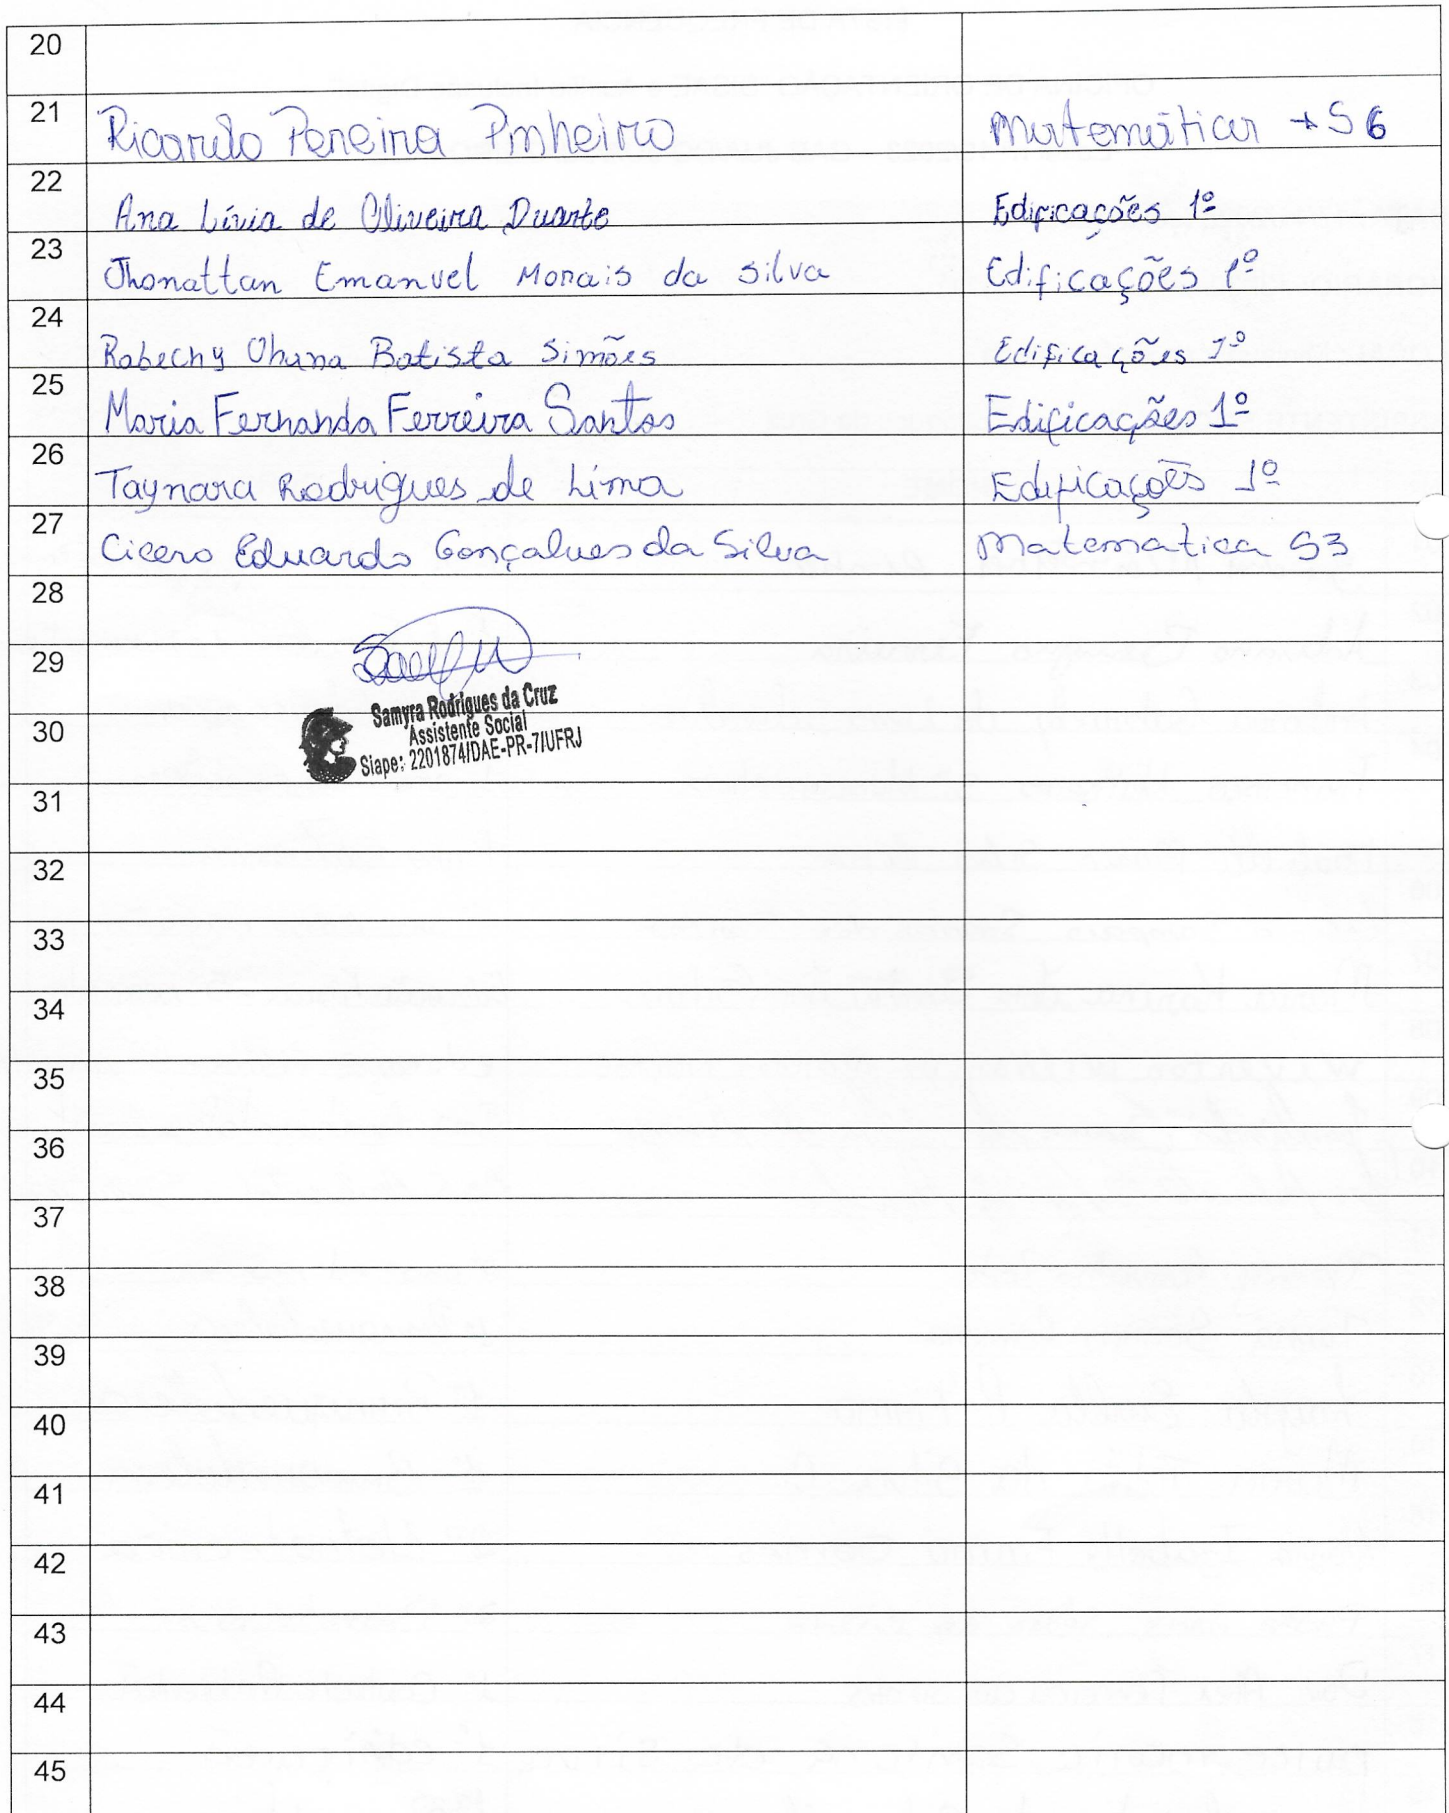 20
21 Ricardo Pereira Pinheiro Matemática + S6
22 Ana Lívia de Oliveira Duarte Edificações 1º
23 Jhonattan Emanuel Morais da Silva Edificações 1º
24 Rabechy Ohana Batista Simões Edificações 1º
25 Maria Fernanda Ferreira Santos Edificações 1º
26 Taynara Rodrigues de Lima Edificações 1º
27 Cicero Eduardo Gonçalves da Silva Matematica S3
28
29
Samyra Rodrigues da Cruz
Assistente Social
30
Siape: 2201874/DAE-PR-7/UFRJ
31
32
33
34
35
36
37
38
39
40
41
42
43
44
45